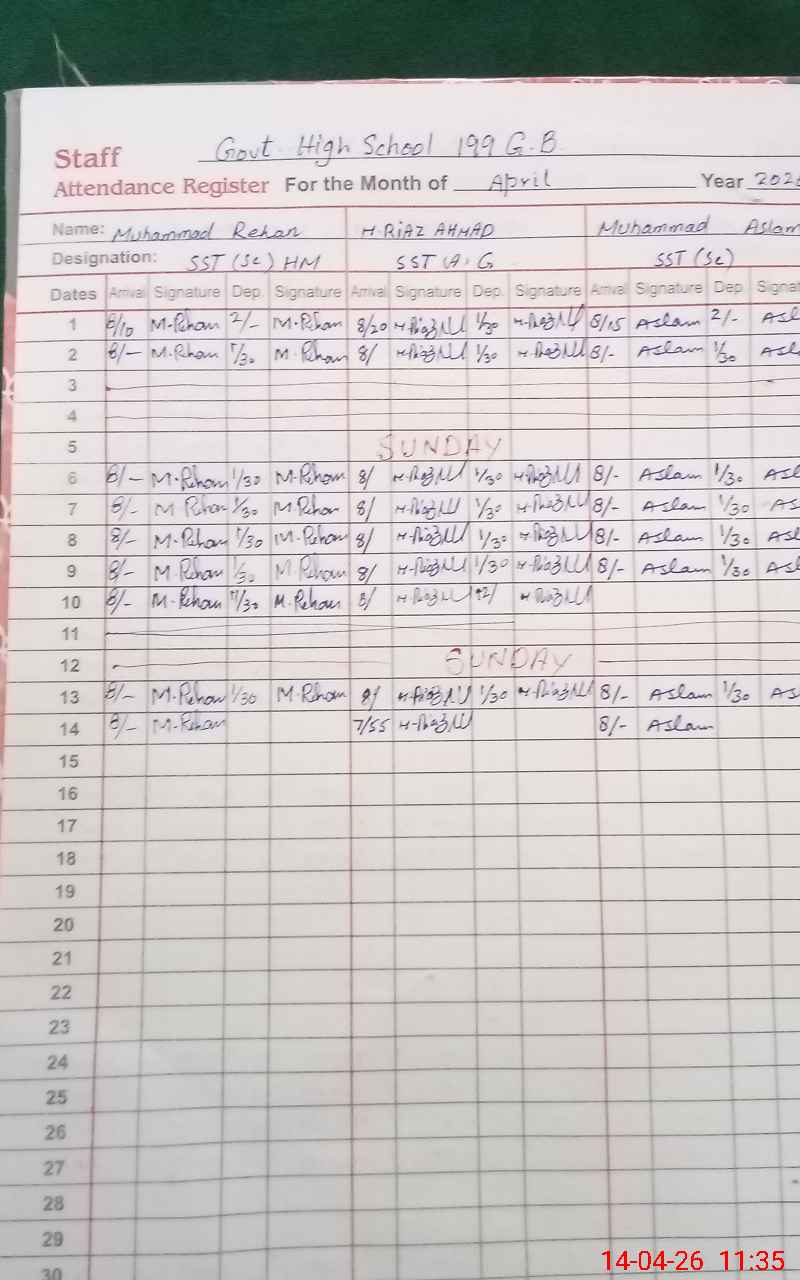 Govt. High School 199 G.B
Staff
Attendance Register For the Month of April Year 202
Name: Muhammad Rehan H.RIAZ AHMAD Muhammad Aslam
Designation: SST (Sc) HM SST (A.G SST (Sc)
Dates Arrival Signature Dep. Signature Arrival Signature Dep. Signature Arrival Signature Dep. Signat
1 8/10 M.Rehan 2/- M.Rehan 8/20 1/30 8/15 Aslam 2/- Asl
2 8/- M.Rehan 1/30 M.Rehan 8/ 1/30 8/- Aslam 1/30 Asl
3
4
5 SUNDAY
6 8/- M.Rehan 1/30 M.Rehan 8/ 1/30 8/- Aslam 1/30 Asl
7 8/- M Rehan 1/30 M.Rehan 8/ 1/30 8/- Aslam 1/30 As
8 8/- M.Rehan 1/30 M.Rehan 8/ 1/30 8/- Aslam 1/30 Asl
9 8/- M.Rehan 1/30 M.Rehan 8/ 1/30 8/- Aslam 1/30 Asl
10 8/- M.Rehan 1/30 M.Rehan 8/ 12/
11
12 SUNDAY
13 8/- M.Rehan 1/30 M.Rehan 8/ 1/30 8/- Aslam 1/30 As
14 8/- M.Rehan 7/55 8/- Aslam
15
16
17
18
19
20
21
22
23
24
25
26
27
28
29
30
14-04-26 11:35